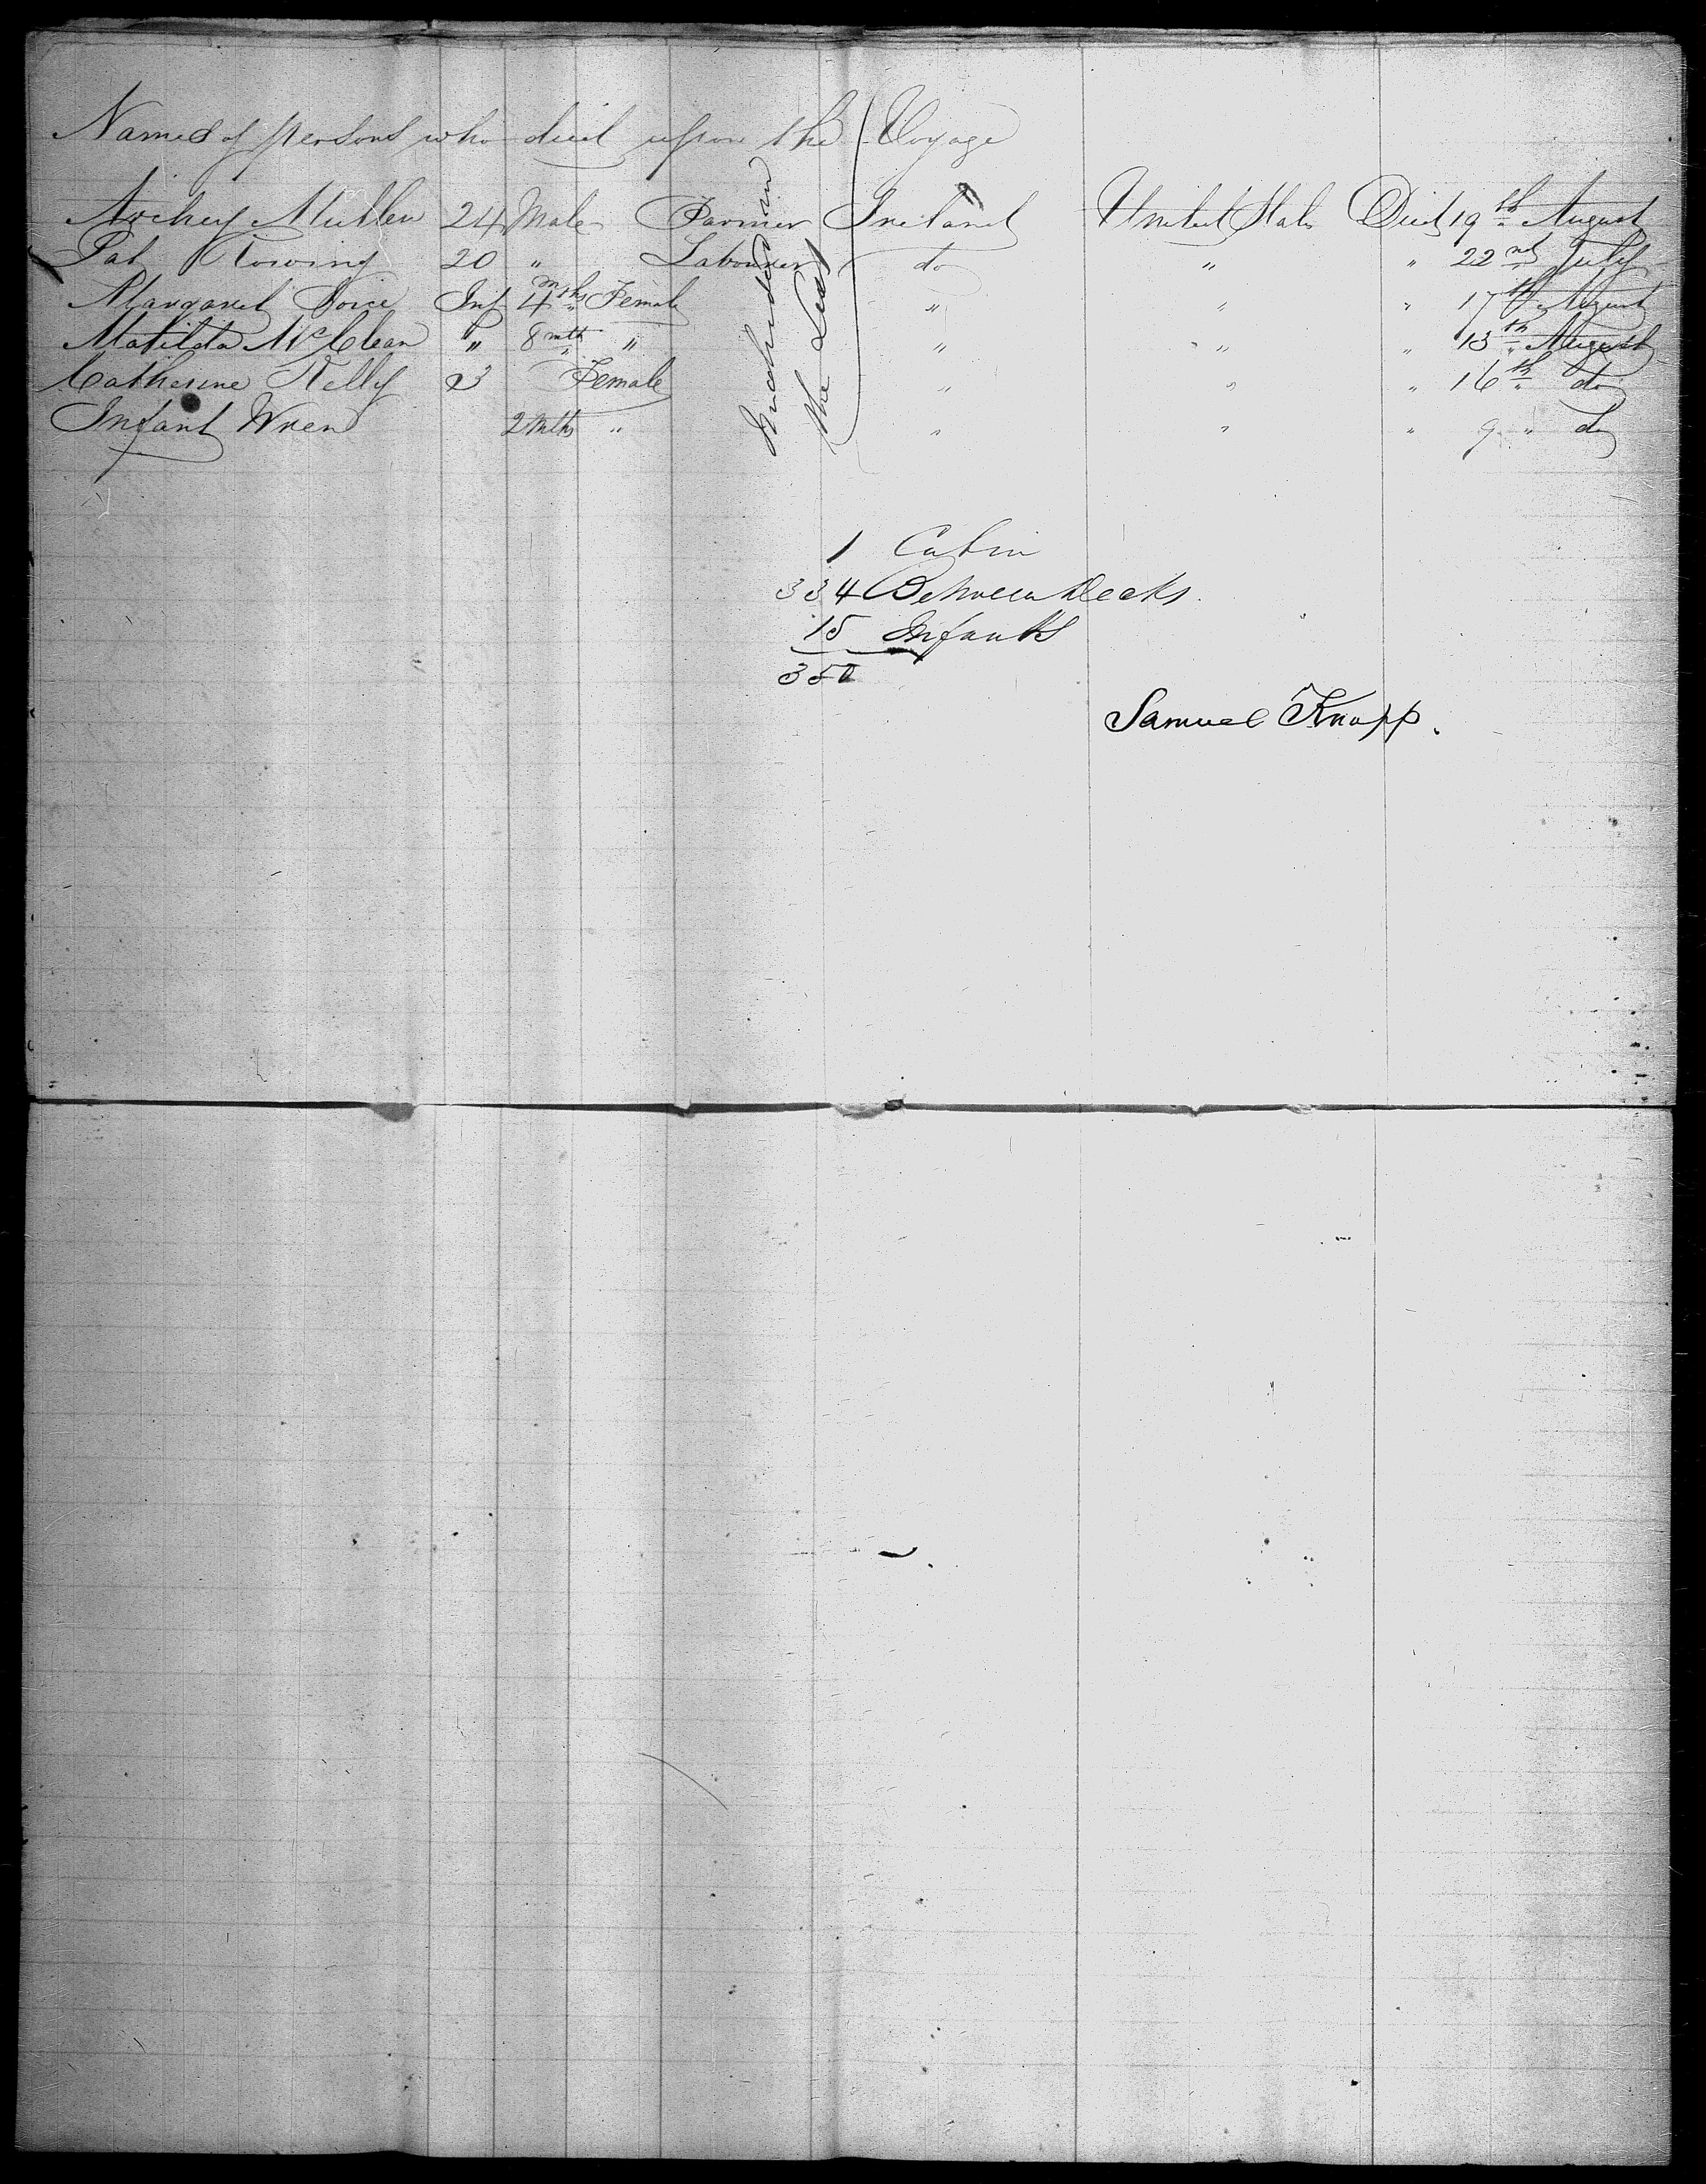 Names of persons who died upon the Voyage
Archey Mullen 24 Male Farmer Ireland United States Died 19th August
Pat 20 " Labourer do " " 22nd July
Margaret Joice Inf 4 mths Female " " " 17th August
Matilda McClean " 8 mth " " " " 13th August
Catherine Kelly 3 Female " " " 16th do
Infant Wren 2 Mths " " " " 9 " do
Included in
the List
1 Cabin
334 Between Decks.
15 Infants
350
Samuel Knapp.